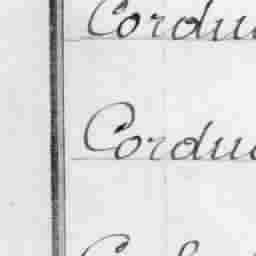 Cordu
Cordu